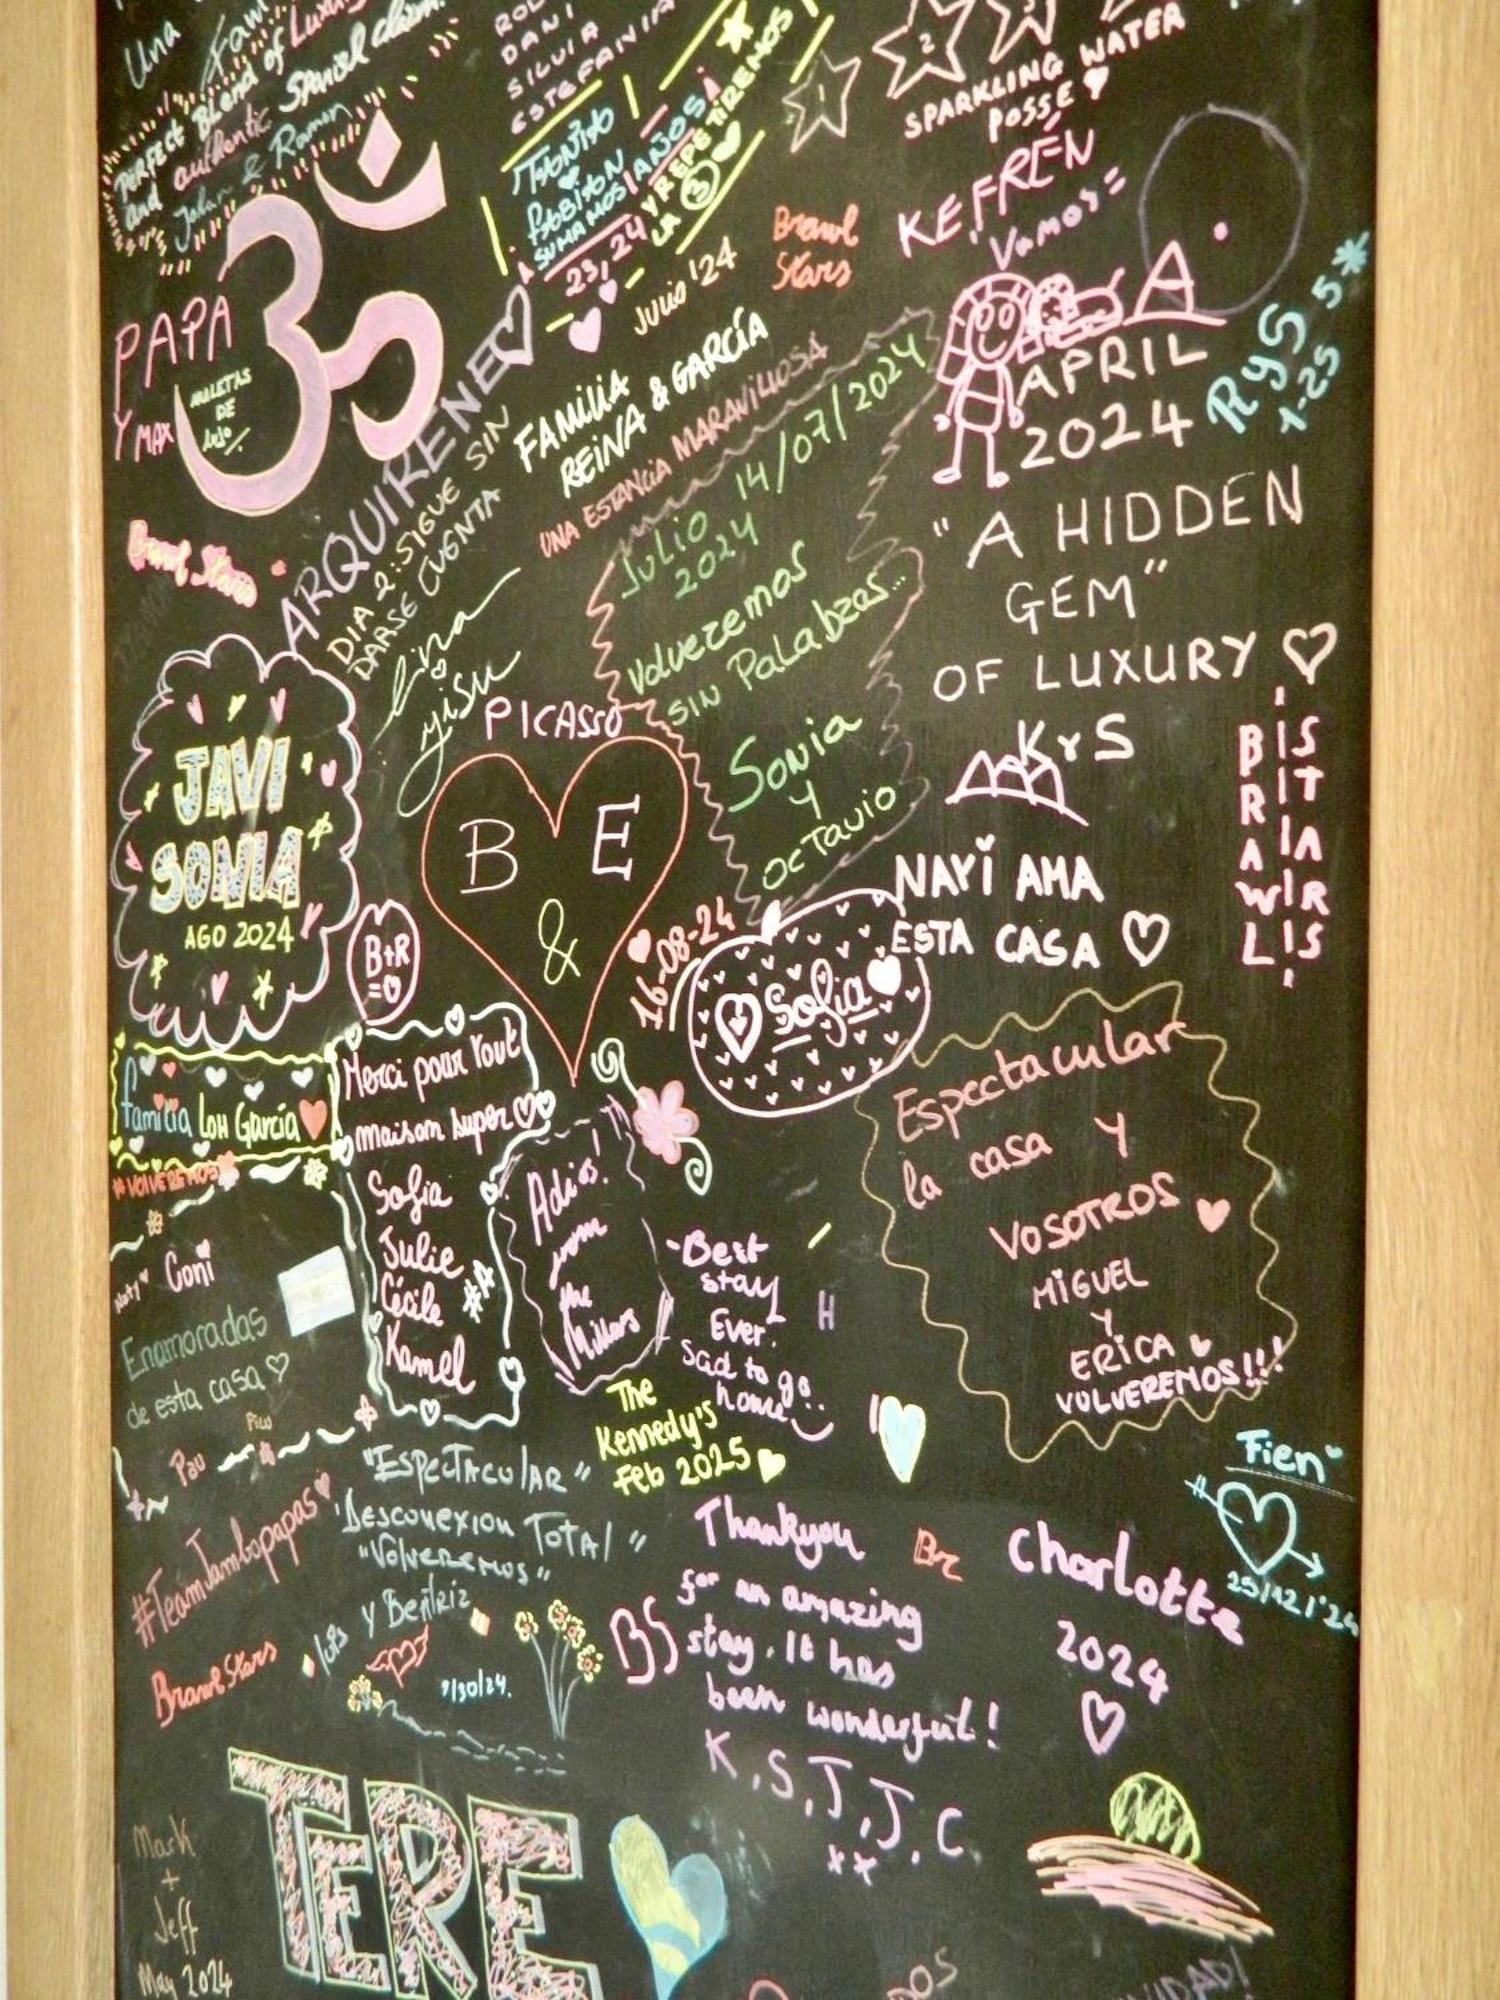 Una
Perfect Blend of Luxury
and authentic Spanish charm.
& Ramon
DANI
SILVIA
ESTEFANIA
SUMAMOS 1 AÑOS
Y REPETIREMOS
LA 3
23, 24
JULIO '24
1
2
3
SPARKLING WATER
POSSE
KEFRÉN
Vamos
Brawl
Stars
PAPA
Y MAX
MALETAS
DE
lujo
ARQUIRENE
DIA 2: SIGUE SIN
DARSE CUENTA
FAMILIA
REINA & GARCÍA
UNA ESTANCIA MARAVILLOSA
14/07/2024
JULIO
2024
Volveremos
SIN Palabras...
Sonia
Y
OCTAVIO
APRIL
2024
RyS
1-25
"A HIDDEN
GEM"
OF LUXURY
KyS
Brawl Stars
PICASSO
B & E
JAVI
SONIA
AGO 2024
B+R
=
16-08-24
Sofia
NAYI AMA
ESTA CASA
BRAWL
STARS
familia Loh García
#VOLVEREMOS
Merci pour tout
maison super
Sofia
Julie
Cécile
Kamel
#A
Adios!
from
the
Millars
Espectacular
la casa Y
VOSOTROS
MIGUEL
Y
ERICA
VOLVEREMOS!!!
Naty
Coni
Enamoradas
de esta casa
Pau
Best
stay
Ever.
Sad to go
home
H
The
Kennedy's
Feb 2025
"ESPECTACULAR"
"Desconexion Total"
"Volveremos"
Y Beatriz
9/30/24.
#TeamJambopapas
Brawl Stars
BS
Thankyou
for an amazing
stay. It has
been wonderful!
K, S, J, J, C
xx
Br
Charlotte
2024
Fien
25/12/'24
TERE
Mark
+
Jeff
May 2024